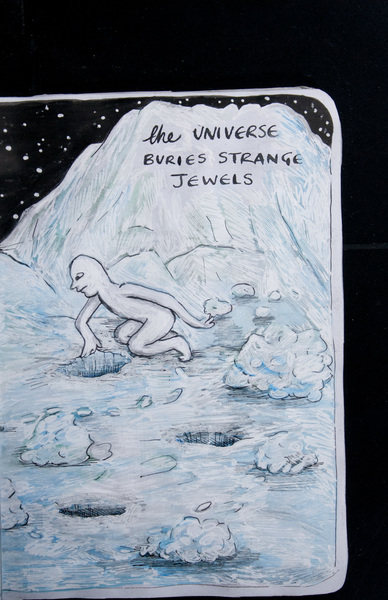 the UNIVERSE
BURIES STRANGE
JEWELS